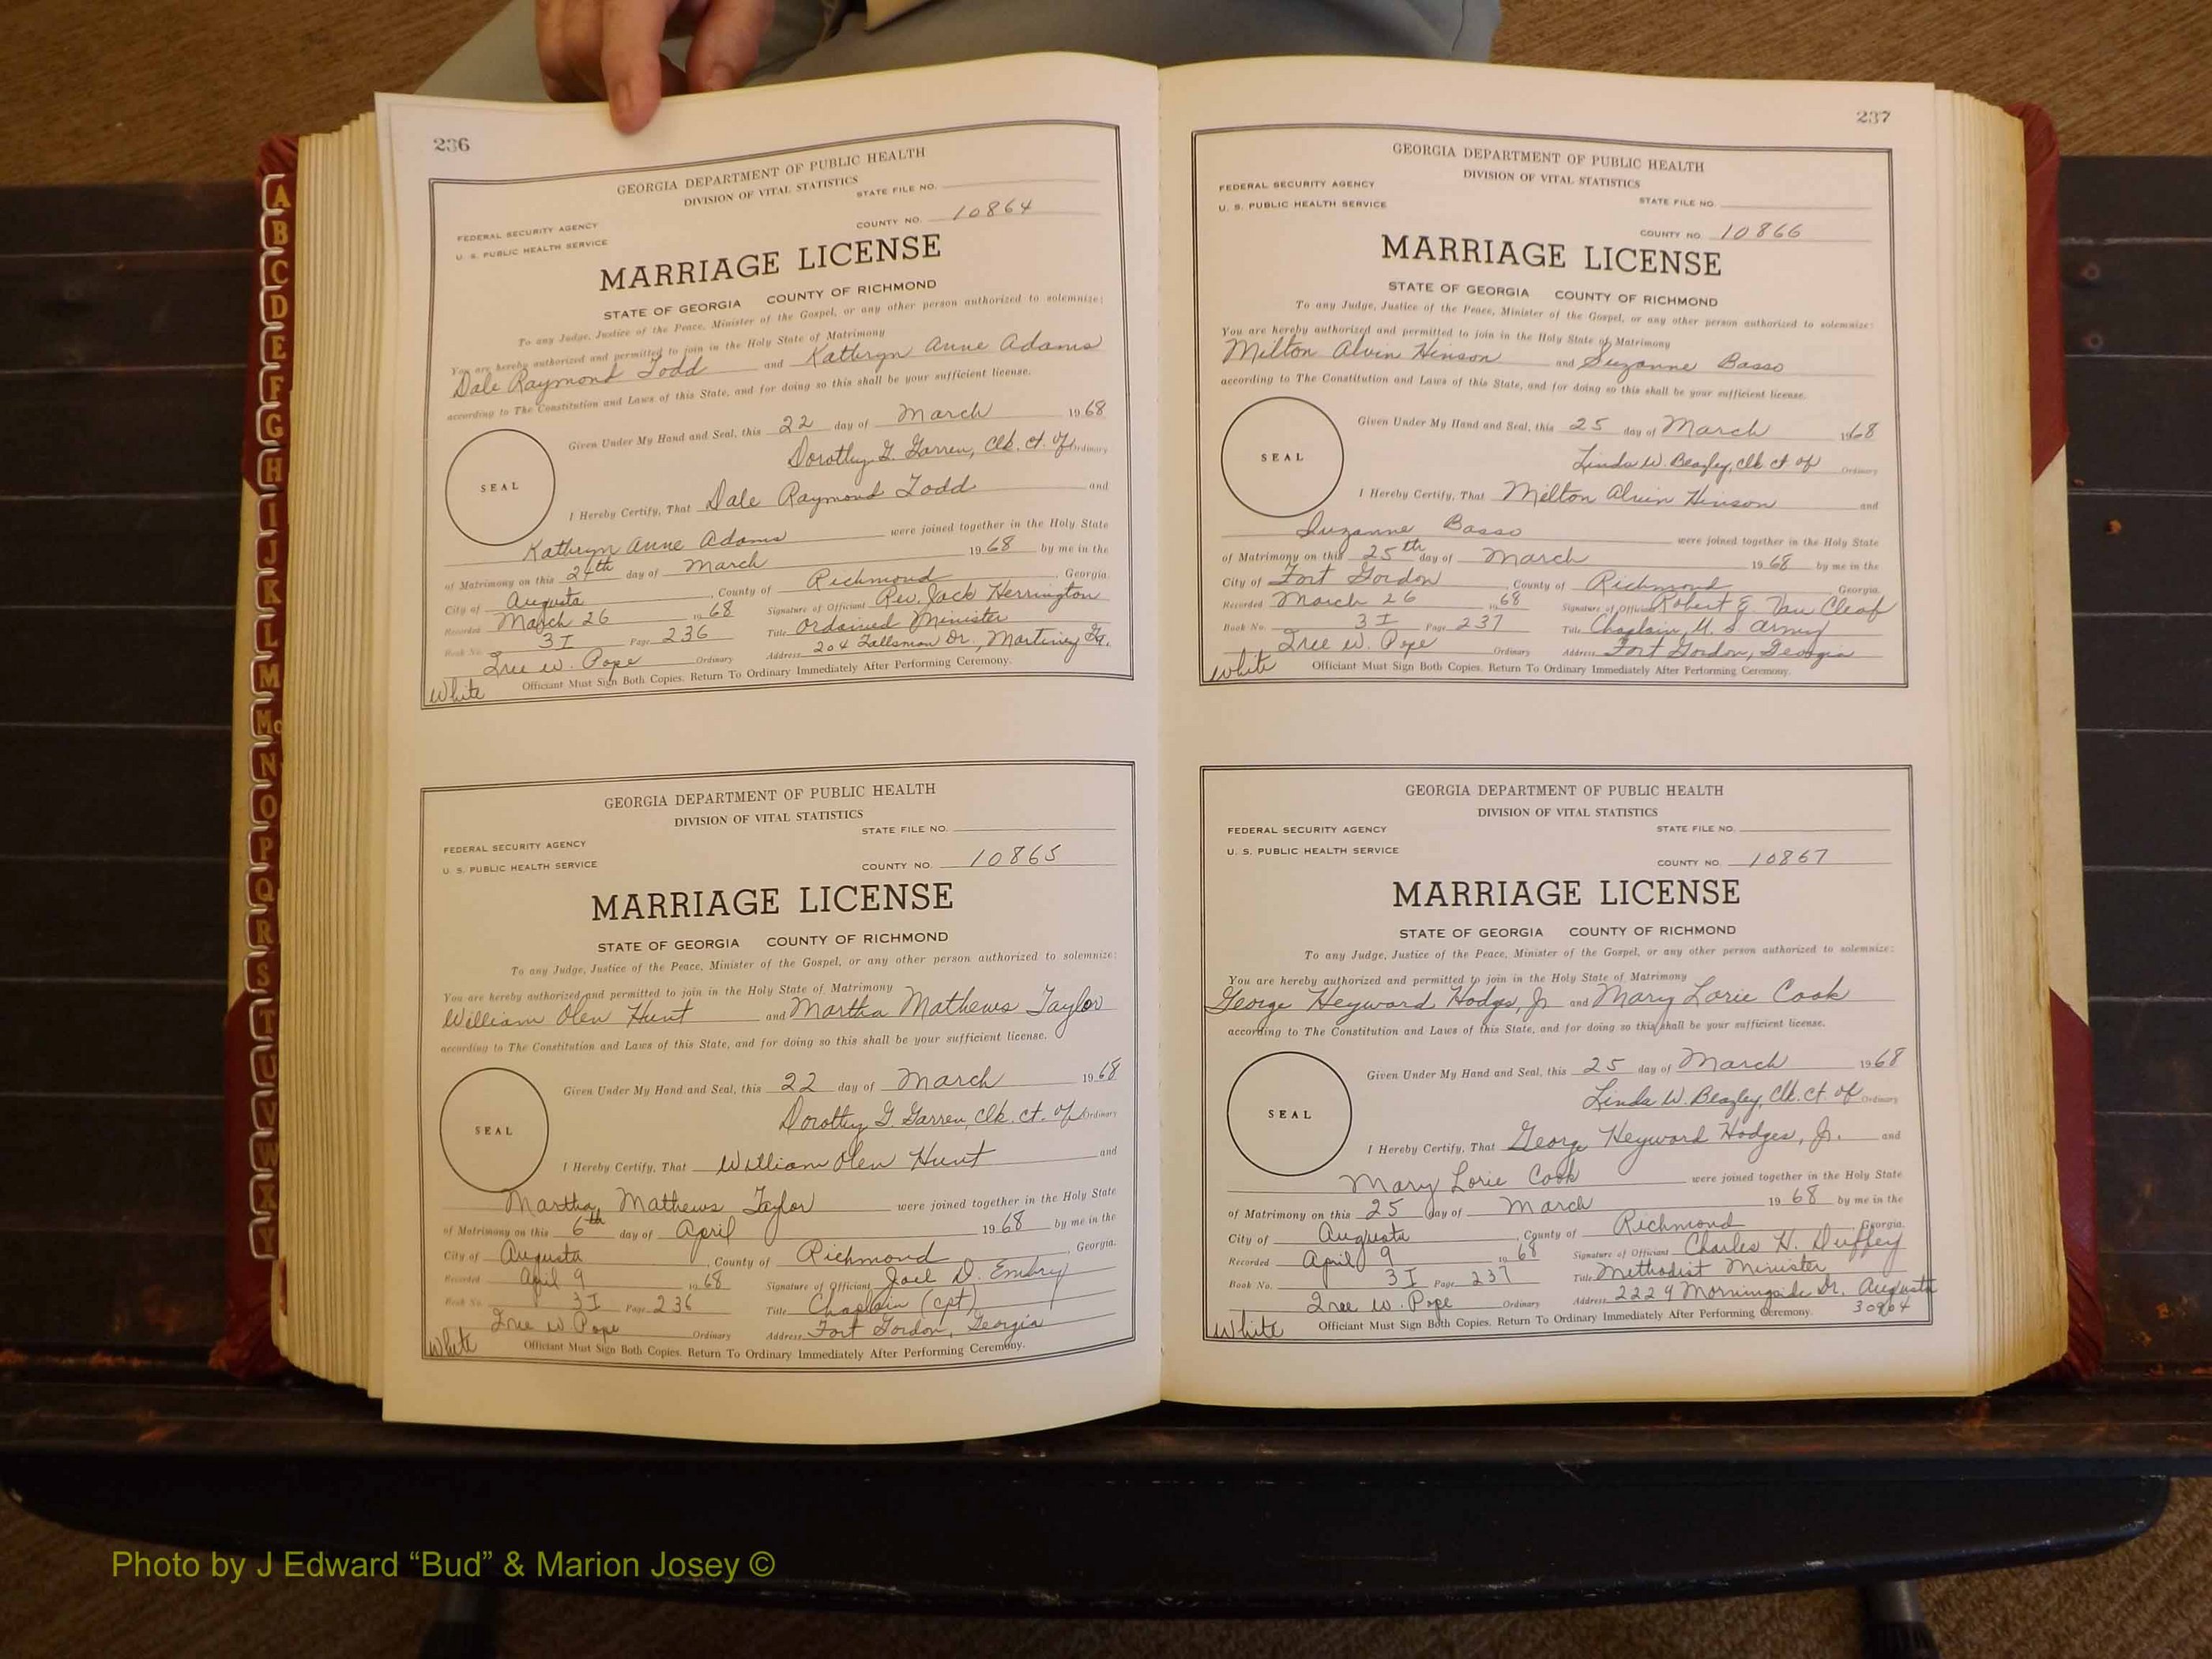 236
GEORGIA DEPARTMENT OF PUBLIC HEALTH
DIVISION OF VITAL STATISTICS
STATE FILE NO.
FEDERAL SECURITY AGENCY
U. S. PUBLIC HEALTH SERVICE
COUNTY NO. 10864
MARRIAGE LICENSE
STATE OF GEORGIA COUNTY OF RICHMOND
To any Judge, Justice of the Peace, Minister of the Gospel, or any other person authorized to solemnize:
You are hereby authorized and permitted to join in the Holy State of Matrimony
Dale Raymond Todd and Kathryn Anne Adams
according to The Constitution and Laws of this State, and for doing so this shall be your sufficient license.
Given Under My Hand and Seal, this 22 day of March 1968
Dorothy G. Garren, Clk. Ct. of Ordinary
SEAL
I Hereby Certify, That Dale Raymond Todd and
Kathryn Anne Adams were joined together in the Holy State
of Matrimony on this 24th day of March 1968 by me in the
City of Augusta, County of Richmond, Georgia.
Recorded March 26 1968 Signature of Officiant Rev. Jack Herrington
Book No. 3I Page 236 Title Ordained Minister
Address 204 Tallsman Dr., Martinez Ga.
Iree W. Pope Ordinary
White Officiant Must Sign Both Copies. Return To Ordinary Immediately After Performing Ceremony.
GEORGIA DEPARTMENT OF PUBLIC HEALTH
DIVISION OF VITAL STATISTICS
STATE FILE NO.
FEDERAL SECURITY AGENCY
U. S. PUBLIC HEALTH SERVICE
COUNTY NO. 10865
MARRIAGE LICENSE
STATE OF GEORGIA COUNTY OF RICHMOND
To any Judge, Justice of the Peace, Minister of the Gospel, or any other person authorized to solemnize:
You are hereby authorized and permitted to join in the Holy State of Matrimony
William Olen Hunt and Martha Mathews Taylor
according to The Constitution and Laws of this State, and for doing so this shall be your sufficient license.
Given Under My Hand and Seal, this 22 day of March 1968
Dorothy G. Garren, Clk. Ct. of Ordinary
SEAL
I Hereby Certify, That William Olen Hunt and
Martha Mathews Taylor were joined together in the Holy State
of Matrimony on this 6th day of April 1968 by me in the
City of Augusta, County of Richmond, Georgia.
Recorded April 9 1968 Signature of Officiant Joel D. Embry
Book No. 3I Page 236 Title Chaplain (cpt)
Iree W Pope Ordinary Address Fort Gordon, Georgia
White Officiant Must Sign Both Copies. Return To Ordinary Immediately After Performing Ceremony.
237
GEORGIA DEPARTMENT OF PUBLIC HEALTH
DIVISION OF VITAL STATISTICS
FEDERAL SECURITY AGENCY
U. S. PUBLIC HEALTH SERVICE
STATE FILE NO.
COUNTY NO. 10866
MARRIAGE LICENSE
STATE OF GEORGIA COUNTY OF RICHMOND
To any Judge, Justice of the Peace, Minister of the Gospel, or any other person authorized to solemnize:
You are hereby authorized and permitted to join in the Holy State of Matrimony
Milton Alvin Henson and Suzanne Basso
according to The Constitution and Laws of this State, and for doing so this shall be your sufficient license.
Given Under My Hand and Seal, this 25 day of March 1968
Linda W. Beazley, Clk. Ct. of Ordinary
SEAL
I Hereby Certify, That Milton Alvin Hinson and
Suzanne Basso were joined together in the Holy State
of Matrimony on this 25th day of March 1968 by me in the
City of Fort Gordon, County of Richmond Georgia.
Recorded March 26 1968 Signature of Officiant Robert E. Van Cleaf
Book No. 3I Page 237 Title Chaplain, U. S. Army
Iree W. Pope Ordinary Address Fort Gordon, Georgia
White Officiant Must Sign Both Copies. Return To Ordinary Immediately After Performing Ceremony.
GEORGIA DEPARTMENT OF PUBLIC HEALTH
DIVISION OF VITAL STATISTICS
FEDERAL SECURITY AGENCY
U. S. PUBLIC HEALTH SERVICE
STATE FILE NO.
COUNTY NO. 10867
MARRIAGE LICENSE
STATE OF GEORGIA COUNTY OF RICHMOND
To any Judge, Justice of the Peace, Minister of the Gospel, or any other person authorized to solemnize:
You are hereby authorized and permitted to join in the Holy State of Matrimony
George Heyward Hodges, Jr and Mary Lorie Cook
according to The Constitution and Laws of this State, and for doing so this shall be your sufficient license.
Given Under My Hand and Seal, this 25 day of March 1968
Linda W. Beazley, Clk. Ct. of Ordinary
SEAL
I Hereby Certify, That George Heyward Hodges, Jr. and
Mary Lorie Cook were joined together in the Holy State
of Matrimony on this 25 day of March 1968 by me in the
City of Augusta, County of Richmond, Georgia.
Recorded April 9 1968 Signature of Officiant Charles H. Duffey
Book No. 3I Page 237 Title Methodist Minister
Iree W. Pope Ordinary Address 2229 Morningside Dr. Augusta
30904
White Officiant Must Sign Both Copies. Return To Ordinary Immediately After Performing Ceremony.
A
B
C
D
E
F
G
H
I
J
K
L
M
Mc
N
O
P
Q
R
S
T
U
V
W
X
Y
Photo by J Edward “Bud” & Marion Josey ©